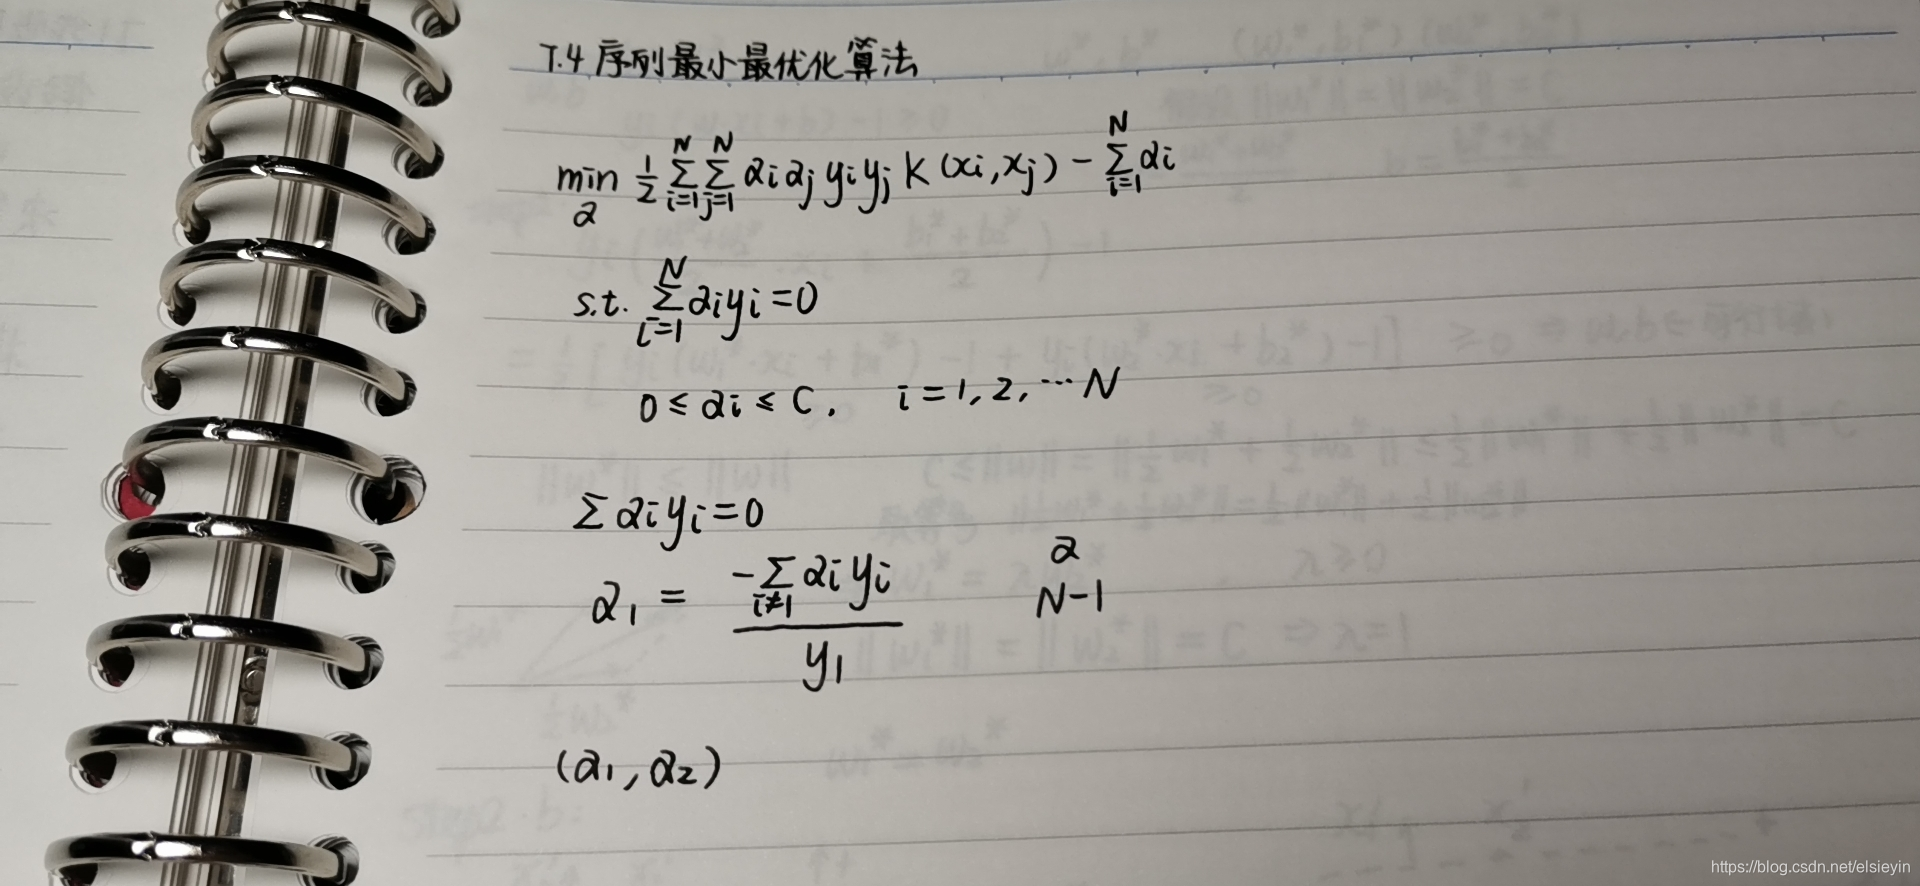 7.4 序列最小最优化算法
min_α 1/2 Σ_{i=1}^{N} Σ_{j=1}^{N} αi αj yi yj K(xi, xj) - Σ_{i=1}^{N} αi
s.t. Σ_{i=1}^{N} αi yi = 0
0 ≤ αi ≤ C, i = 1, 2, ··· N
Σ αi yi = 0
α1 = (-Σ_{i≠1} αi yi) / y1
α
N-1
(α1, α2)
https://blog.csdn.net/elsieyin